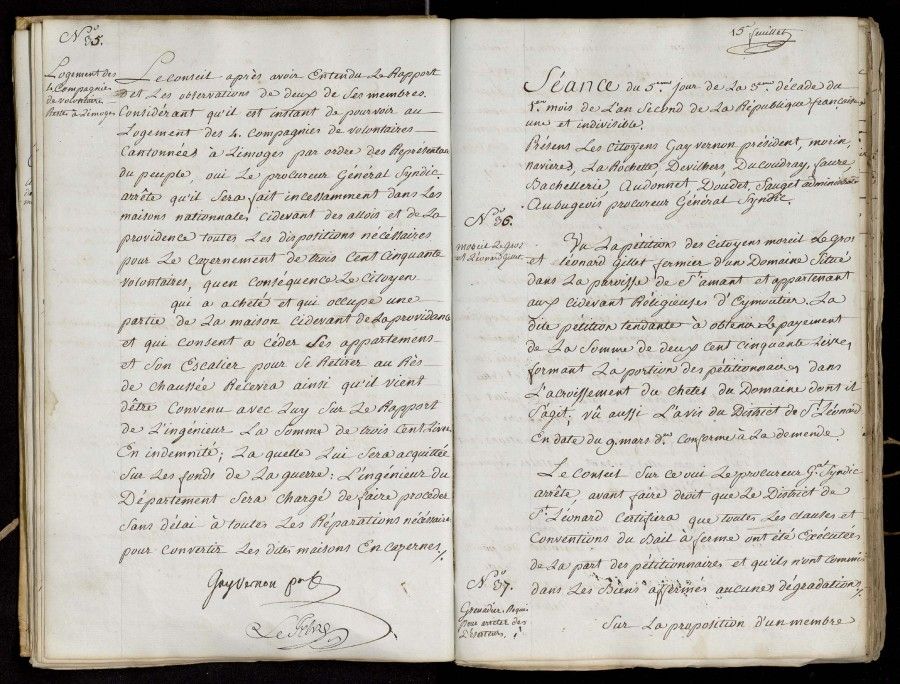 No 35.
Logement des
4. Compagnies
de volontaire
Resté à Limoges
Le conseil après avoir Entendu Le Rapport
Et Les observations de deux de ses membres.
Considérant qu'il est instant de pourvoir au
Logement des 4. Compagnies de volontaires
Cantonnées à Limoges par ordre des Représentan
du peuple, oui Le procureur Général Syndic
arrête qu'il Sera fait incessamment dans Les
maisons nationales cidevant des allois et de La
providence toutes Les dispositions nécéssaires
pour Le Cazernement de trois Cent Cinquante
volontaires, quen conséquence Le Citoyen
qui a acheté et qui occupe une
partie de La maison cidevant de La providance
et qui consent a céder Ses appartemens
et Son Escalier pour Se Retirer au Rès
de chaussée Recevra ainsi qu'il vient
d'être Convenu avec Luy Sur Le Rapport
de L'ingénieur La Somme de trois Cent Livre
En indemnité; La quelle Lui Sera acquittée
Sur Les fonds de La guerre: L'ingénieur du
Département Sera chargé de faire procéder
Sans délai à toutes Les Réparations nécéssaire
pour convertir Les dites maisons En cazernes./.
Gay Vernon pt
15 juillet
Séance du 5.eme jour de La 3.eme décade du
1.er mois de L'an Second de La République française
une et indivisible.
Présens Les Citoyens Gay vernon président, morin,
navieres, La Rochette, Devilhers, Ducoudray, faure
Bachellerie, Audonnet, Doudet, Sauger administrate
Aubugeois procureur Général Syndic.
No 36.
moreil Le Gros
et Léonard gillet
Vu La pétition des Citoyens moreil Le Gros
et Léonard Gillet fermier d'un Domaine Situé
dans La parroisse de St amant et appartenant
aux cidevant Religieuses d'Eymoutier La
dite pétition tendante à obtenir Le payement
de La Somme de deux Cent Cinquante Livres,
formant La portion des pétitionnaires dans
L'acroissement du cheteil du Domaine dont il
S'agit; vû aussi L'avis du District de St Léonard
En date du 9. mars der conforme à La demende.
Le Conseil Sur ce oui Le procureur Gal Syndic
arrête, avant faire droit que Le District de
St Léonard Certifiera que toutes Les clauses et
Conventions du Bail à ferme ont été Exécutées
de La part des pétitionnaires et qu'ils n'ont commis
dans Les Biens affermés aucunes dégradations./.
No 37.
Grenadier Requis
pour arreter des
Déserteurs.
Sur La proposition d'un membre